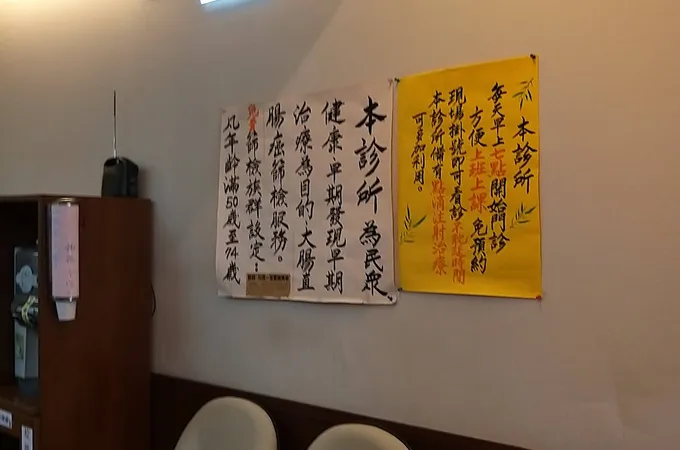 本診所
每天早上七點開始門診
方便上班上課免預約
現場掛號即可看診不耽誤時間
本診所備有點滴注射治療
可多加利用。
本診所為民眾、
健康、早期發現早期
治療為目的、大腸直
腸癌節檢服務。
免費節檢族群設定：
凡年齡滿50歲至74歲